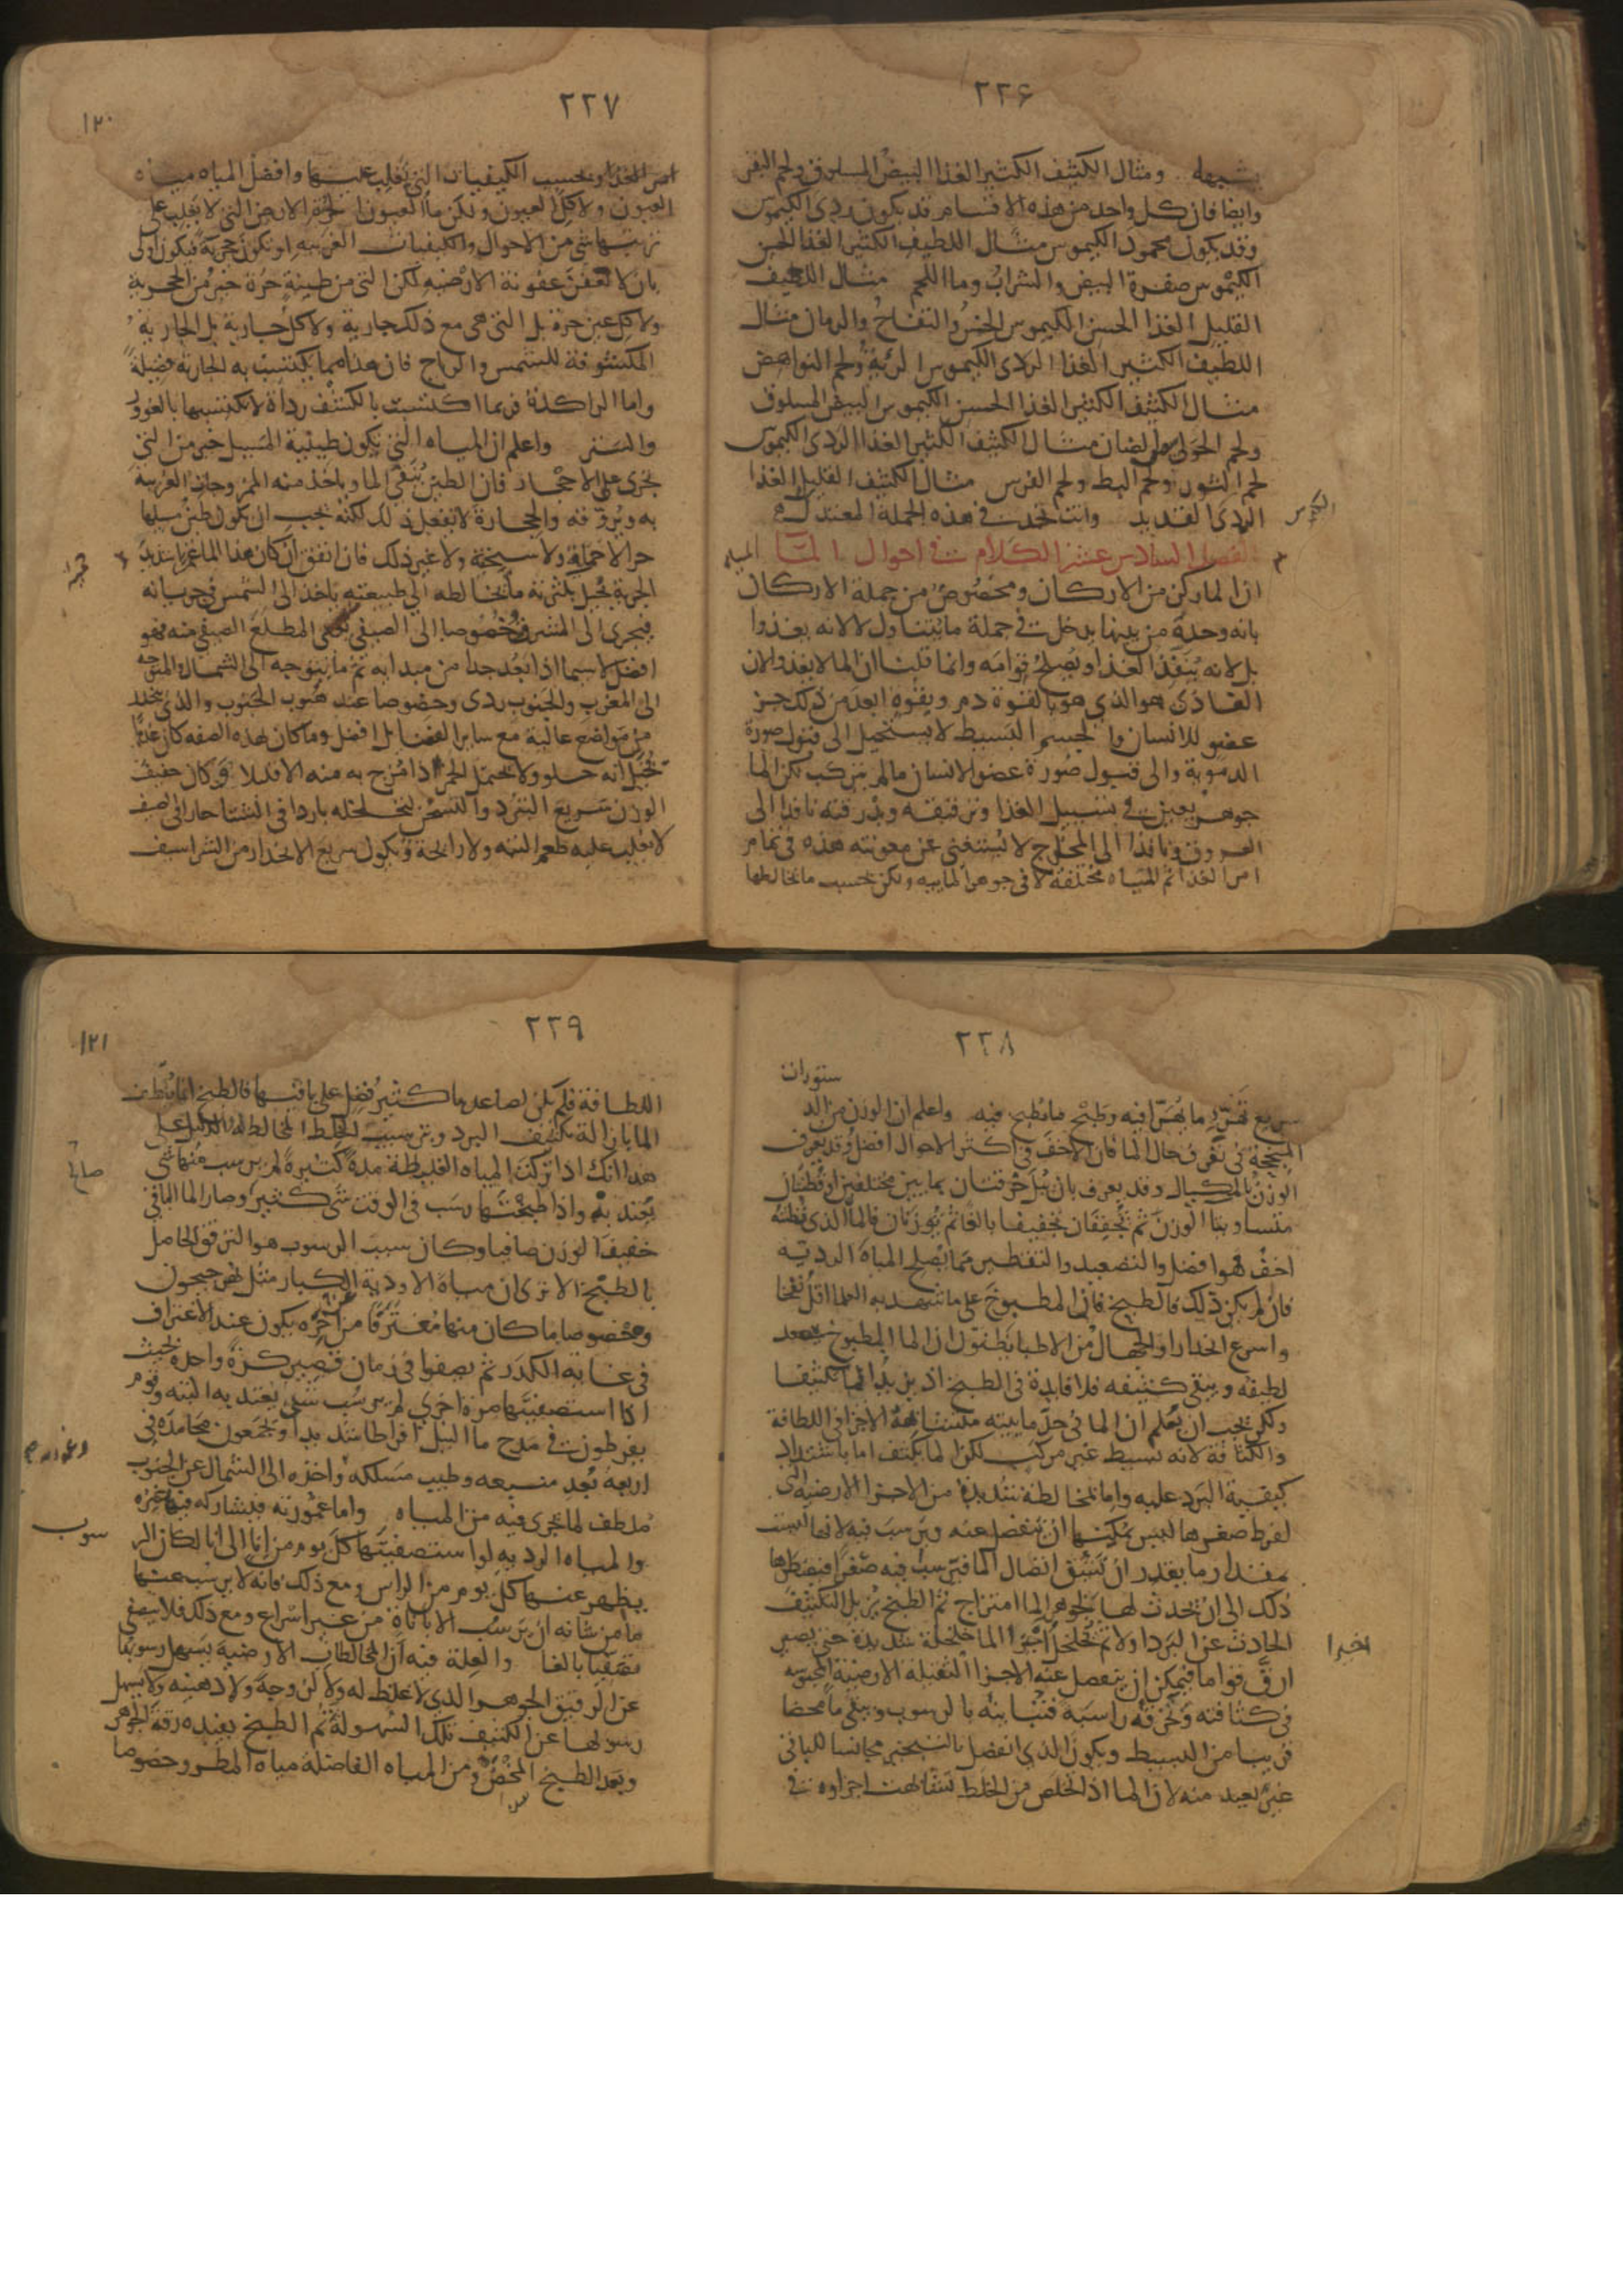 ٢٢۶
يشبهه ومثال الكثيف الكثير الغذا البيض المسلوق ولحم البقر
وايضا فان كل واحد من هذه الاقسام قد يكون ردى الكيموس
وقد يكون محمود الكيموس مثال اللطيف الكثير الغذا الحسن
الكيموس صفرة البيض والشراب وما اللحم مثال اللطيف
القليل الغذا الحسن الكيموس الخس والتفاح والرمان مثال
اللطيف الكثير الغذا الردى الكيموس الرئة ولحم النواهض
مثال الكثيف الكثير الغذا الحسن الكيموس البيض المسلوق
ولحم الحولى من الضان مثال الكثيف الكثير الغذا الردى الكيموس
لحم الثور ولحم البط ولحم الفرس مثال الكثيف القليل الغذا
الردى القديد وانت تجد فى هذه الجملة المعتدل
الفصل السادس عشر الكلام فى احوال الما
ان الما ركن من الاركان ومخصوص من جملة الاركان
بانه وحده من بينها يدخل فى جملة ما يتناول لا لانه يغذوا
بل لانه ينفذ الغذا ويصلح قوامه وانما قلنا ان الما لا يغذو لان
الغاذى هو الذى هو بالقوة دم وبقوة ابعد من ذلك جز
عضو للانسان والجسم البسيط لا يستحيل الى قبول صورة
الدموية والى قبول صورة عضو الانسان ما لم يتركب لكن الما
جوهر يعين فى تسييل الغذا وترقيقه وبذرقته نافذا الى
العروق ونافذا الى المخارج لا يستغنى عن معونته هذه فى تمام
امر الغذا ثم المياه مختلفة لا فى جوهر المايية ولكن بحسب ما يخالطها
٢٢٧
١٢٠
امر الغذا وبحسب الكيفيات التى تغلب عليها وافضل المياه مياه
العيون ولا كل العيون ولكن ما العيون الحرة الارض التى لا يغلب على
تربتها شى من الاحوال والكيفيات الغريبه او تكون حجرية فيكون اولى
بان لا تعفن عفونة الارضيه لكن التى من طينة حرة خير من الحجرية
ولا كل عين حرة بل التى هى مع ذلك جارية ولا كل جارية بل الجارية
المكشوفة للشمس والرياح فان هذا مما يكتسب به الجارية فضيلة
واما الراكدة فربما اكتسبت بالكشف رداة لا تكتسبها بالغور
والستر واعلم ان المياه التى يكون طينية المسيل خير من التى
تجرى على الاحجار فان الطين ينقى الما وياخذ منه الممزوجات الغريبة
به ويروقه والحجارة لا تفعل ذلك لكنه يجب ان يكون طين مسيلها
حرا لا حمأة ولا سبخة ولا غير ذلك فان اتفق ان كان هذا الما غمرا شديد
الجرية يحيل بكثرته ما يخالطه الى طبيعته ياخذ الى الشمس فى جريانه
فيجرى الى المشرق وخصوصا الى الصيفى اعنى المطلع الصيفى منه فهو
افضل لا سيما اذا بعد جدا من مبدايه ثم ما يتوجه الى الشمال والمتوجه
الى المغرب والجنوب ردى وخصوصا عند هبوب الجنوب والذى ينحدر
من مواضع عالية مع ساير الفضايل افضل وما كان بهذه الصفه كان عذبا
يخيل انه حلو ولا يحتمل الخمر اذا مزج به منه الا قليلا وكان خفيف
الوزن سريع التبرد والتسخن لتخلخله باردا فى الشتا حارا فى الصيف
لا يغلب عليه طعم البته ولا رايحة ويكون سريع الانحدار من الشراسيف
٢٢٨
سريع تهرى ما يهرا فيه وطبخ ما يطبخ فيه واعلم ان الوزن من الد
ستورات
المنجحة فى تعرف حال الما فان الاخف فى اكثر الاحوال افضل وقد يعرف
الوزن بالمكيال وقد يعرف بان تبل خرقتان بمايين مختلفين او قطنتان
متساويتا الوزن ثم تجففان تجفيفا بالغا ثم توزنان فالما الذى قطنته
اخف فهو افضل والتصعيد والتقطير مما يصلح المياه الردية
فان لم يكن ذلك فالطبخ فان المطبوخ على ما شهد به العلما اقل نفخا
واسرع انحدارا والجهال من الاطبا يظنون ان الما المطبوخ يصعد
لطيفه ويبقى كثيفه فلا فايدة فى الطبخ اذ يزيد الما تكثيفا
ولكن يجب ان يعلم ان الما فى حد ماييته متشابهة الاجزا فى اللطافة
والكثافة لانه بسيط غير مركب لكن الما يكثف اما باشتداد
كيفية البرد عليه واما بمخالطة شديدة من الاجزا الارضية التى
لفرط صغرها ليس يمكنها ان تنفصل عنه وترسب فيه لانها ليست
بمقدار ما يقدر ان تشق اتصال الما فترسب فيه صغرا فيضطرها
ذلك الى ان يحدث لها بجوهر الما امتزاج ثم الطبخ يزيل التكثيف
الحادث عن البرد اولا ثم يخلخل اجزا الما خلخلة شديدة حتى يصير
اخيرا
ارق قواما فيمكن ان ينفصل عنه الاجزا الثقيلة الارضية المحبوسه
فى كثافته وتخرقه راسبة فتباينه بالرسوب ويبقى ما محضا
قريبا من البسيط ويكون الذى انفصل بالتبخير مجانسا للباقى
غير بعيد منه لان الما اذا تخلص من الخلط تشابهت اجزاوه فى
٢٢٩
١٢١
اللطافة فلم يكن لصاعدها كثير فضل على باقيها فالطبخ انما يلطف
الما بازالة تكثيف البرد وبترسيب الخلط المخالط له والدليل على
هذا انك اذا تركت المياه الغليظة مدة كثيرة لم يرسب منها شى
يعتد به واذا طبختها رسب فى الوقت شى كثير وصار الما الباقى
خفيف الوزن صافيا وكان سبب الرسوب هو الترقق الحاصل
بالطبخ الا ترى ان مياه الاودية الكبار مثل نهر جيحون
وخصوصا ما كان منها مغترفا من اخره يكون عند الاغتراف
فى غاية الكدر ثم يصفوا فى زمان قصير كرة واحدة بحيث
اذا استصفيتها مرة اخرى لم يرسب شى يعتد به البته وقوم
يفرطون فى مدح ما النيل افراطا شديدا ويجمعون محامده فى
اربعة بعد منبعه وطيب مسلكه واخذه الى الشمال عن الجنوب
ملطف لما يجرى فيه من المياه واما غمورته فيشاركه فيها غيره
والمياه الرديه لو استصفيتها كل يوم من انا الى انا لكان الر
سوب
يظهر عنها كل يوم من الراس ومع ذلك فانه لا يرسب عنها
ما من شانه ان يرسب الا باناة من غير اسراع ومع ذلك فلا يتصفى
تصفيا بالغا والعلة فيه ان المخالطات الارضية يسهل رسوبها
عن الرقيق الجوهر الذى لا غلظ له ولا لزوجة ولا دهنيه ولا يسهل
رسوبها عن الكثيف تلك السهولة ثم الطبخ يفيده رقة الجوهر
وبعد الطبخ المخض ومن المياه الفاضلة مياه المطر وخصوصا